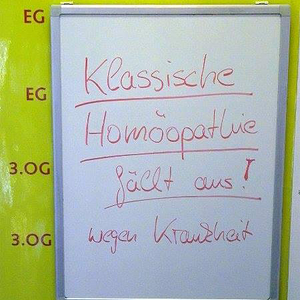 EG
EG
3.OG
3.OG
Klassische
Homöopathie
fällt aus!
wegen Krankheit